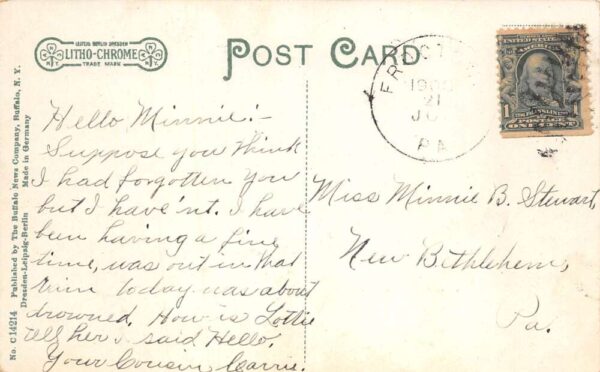 LEIPZIG BERLIN DRESDEN
LITHO-CHROME
TRADE MARK
POST CARD
UNITED STATES OF AMERICA
1
FRANKLIN
POSTAGE
ONE CENT
21
PA
No. C 14214 Published by The Buffalo News Company, Buffalo, N. Y.
Dresden-Leipzig-Berlin Made in Germany
Hello Minnie:-
Suppose you think
I had forgotten you
but I have'nt. I have
been having a fine
time, was out in that
today, was about
drowned. How is Lottie
tell her I said Hello.
Your Cousin, Carrie.
Miss Minnie B. Stewart,
New Bethlehem,
Pa.